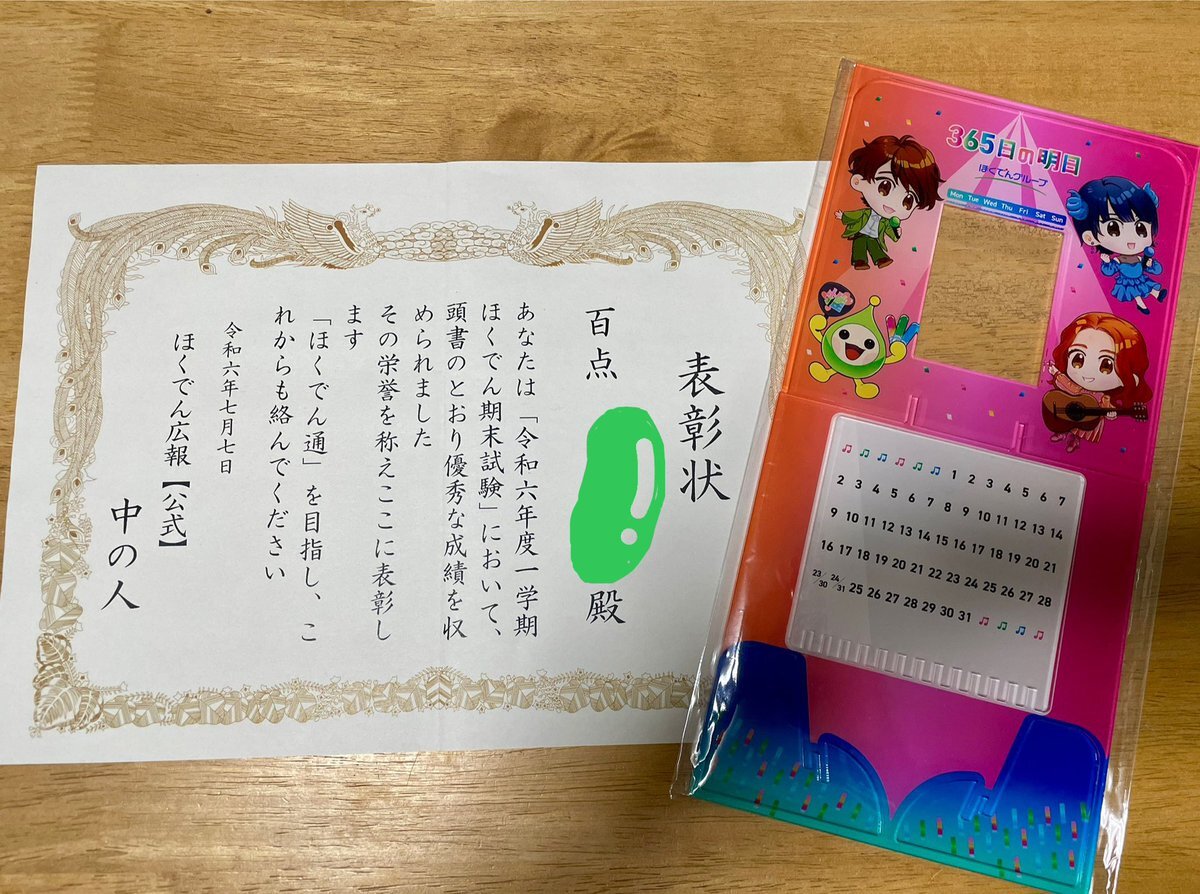 表彰状
百点
殿
あなたは「令和六年度一学期
ほくでん期末試験」において、
頭書のとおり優秀な成績を収
められました
その栄誉を称えここに表彰し
ます
「ほくでん通」を目指し、こ
れからも絡んでください
令和六年七月七日
ほくでん広報【公式】
中の人
365日の明日
ほくでんグループ
Mon Tue Wed Thu Fri Sat Sun
1 2 3 4 5 6 7
2 3 4 5 6 7 8 9 10 11 12 13 14
9 10 11 12 13 14 15 16 17 18 19 20 21
16 17 18 19 20 21 22 23 24 25 26 27 28
23/30 24/31 25 26 27 28 29 30 31